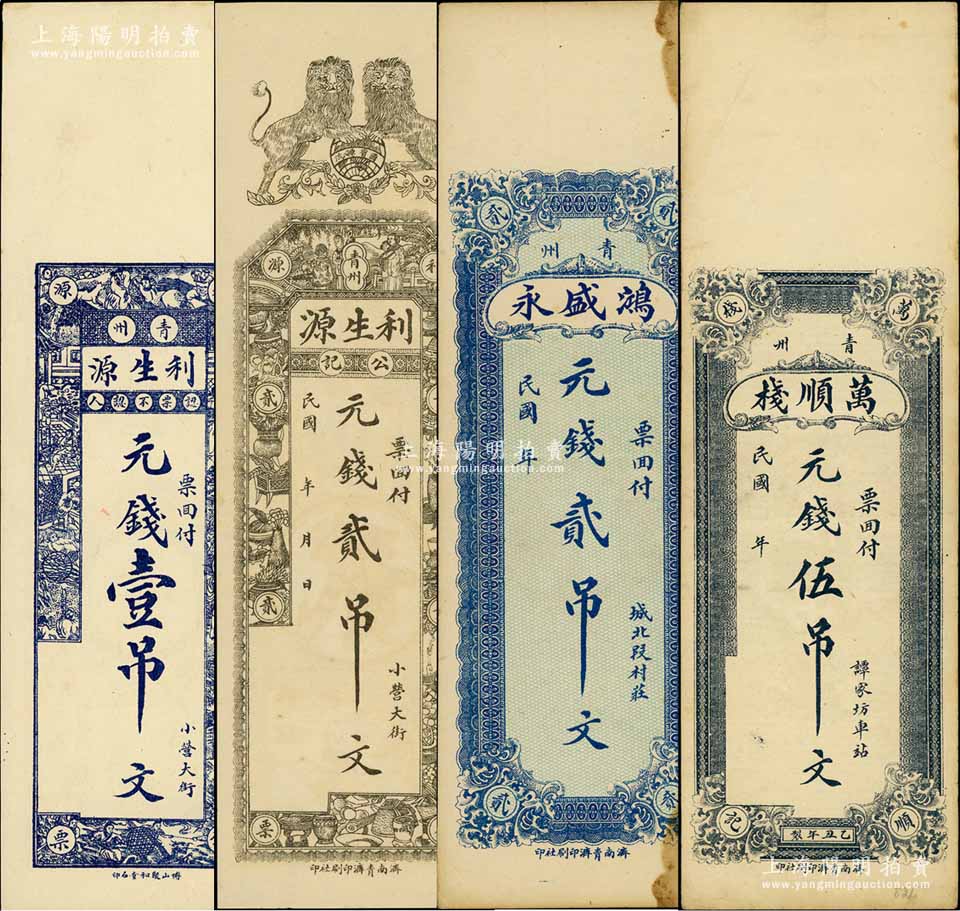 上海陽明拍賣
www.yangmingauction.com
源
青州
利生源
認票不認人
票回付
元錢壹吊文
小營大街
票
博山聚和堂石印
利
青州
源
利生源
公記
貳
票回付
元錢貳吊文
民國 年 月 日
小營大街
貳
票
濟南青濟印刷社印
貳
貳
青州
鴻盛永
票回付
元錢貳吊文
民國 年
城北段村莊
貳
貳
濟南青濟印刷社印
青州
萬順棧
票回付
元錢伍吊文
民國 年
譚家坊車站
順
記
乙丑年製
濟南青濟印刷社印
上海陽明拍賣
www.yangmingauction.com
上海陽明拍賣
www.yangmingauction.com